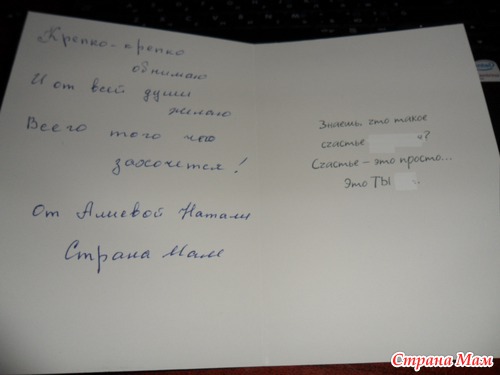 Крепко-крепко
обнимаю
И от всей души
желаю
Всего того чего
захочется!
От Алиевой Натали
Страна Мам
Знаешь, что такое
счастье ?
Счастье – это просто...
Это ТЫ .
intel
Страна Мам